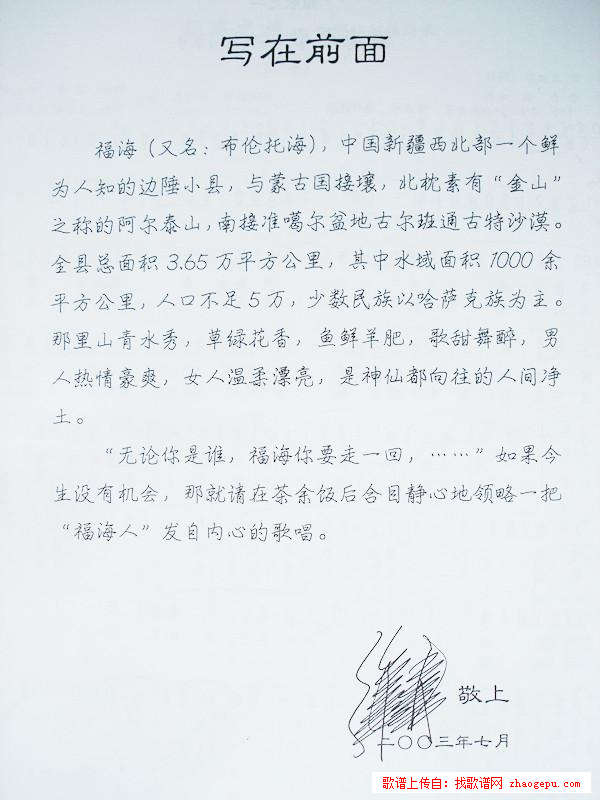 写在前面
福海（又名：布伦托海），中国新疆西北部一个鲜
为人知的边陲小县，与蒙古国接壤，北枕素有“金山”
之称的阿尔泰山，南接准噶尔盆地古尔班通古特沙漠。
全县总面积 3.65 万平方公里，其中水域面积 1000 余
平方公里，人口不足 5 万，少数民族以哈萨克族为主。
那里山青水秀，草绿花香，鱼鲜羊肥，歌甜舞醉，男
人热情豪爽，女人温柔漂亮，是神仙都向往的人间净
土。
“无论你是谁，福海你要走一回，……”如果今
生没有机会，那就请在茶余饭后合目静心地领略一把
“福海人”发自内心的歌唱。
敬上
二〇〇三年七月
歌谱上传自：找歌谱网 zhaogepu.com